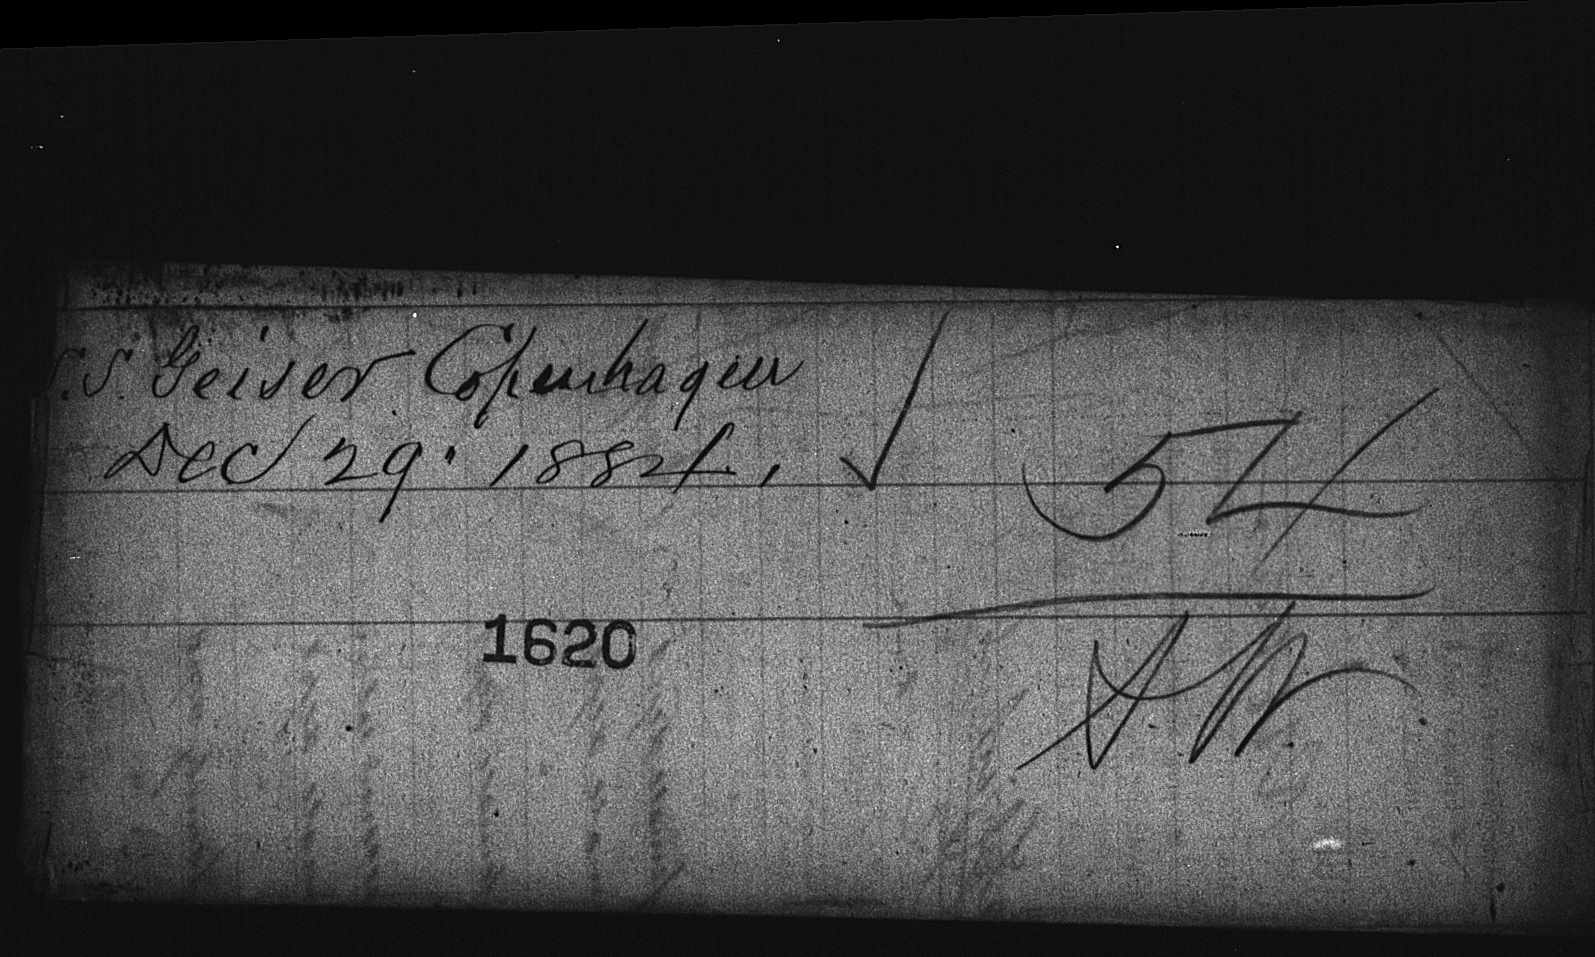 S. Geiser Copenhagen
Dec 29. 1884.
52
1620